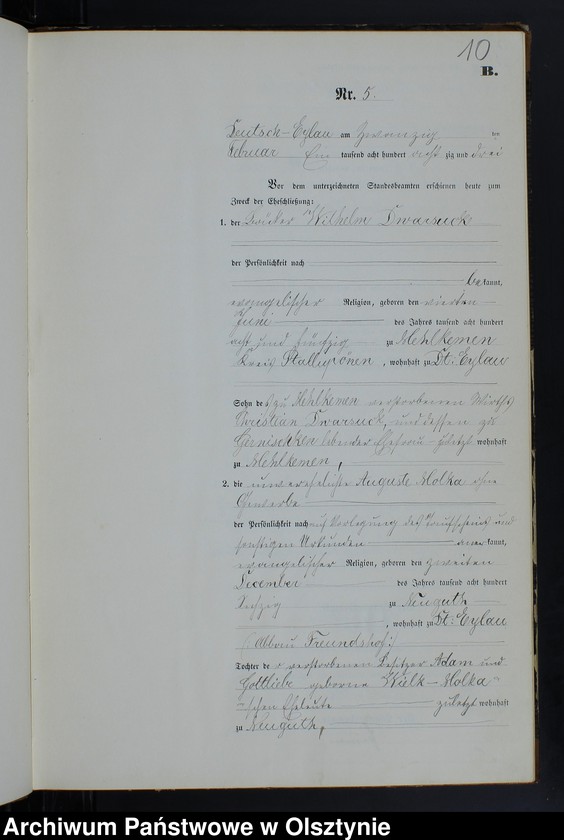 10
B.
Nr. 5.
Deutsch-Eylau am Zwanzig ten
Februar Ein tausend acht hundert acht zig und drei
Vor dem unterzeichneten Standesbeamten erschienen heute zum
Zweck der Eheschließung:
1. der Wilhelm Dwarsuck
der Persönlichkeit nach
be kannt,
evangelischer Religion, geboren den vierten
Juni des Jahres tausend acht hundert
acht und fünfzig zu Mehlkemen
Kreis Stallupönen, wohnhaft zu Dt: Eylau
Sohn des zu Mehlkemen verstorbenen Wirths
Christian Dwarsuck, und dessen zu
lebender Ehefrau zuletzt wohnhaft
zu Mehlkemen,
2. die unverehelichte Auguste Molka ohne
Gewerbe
der Persönlichkeit nach auf Vorlegung des Taufscheins und
sonstigen Urkunden aner kannt,
evangelischer Religion, geboren den zweiten
December des Jahres tausend acht hundert
Sechzig zu Neuguth
, wohnhaft zu Dt: Eylau
(: Abbau Freundshof :)
Tochter der verstorbenen Besitzer Adam und
Gottliebe geborene Kulk-Molka-
schen Eheleute zuletzt wohnhaft
zu Neuguth,
Archiwum Państwowe w Olsztynie